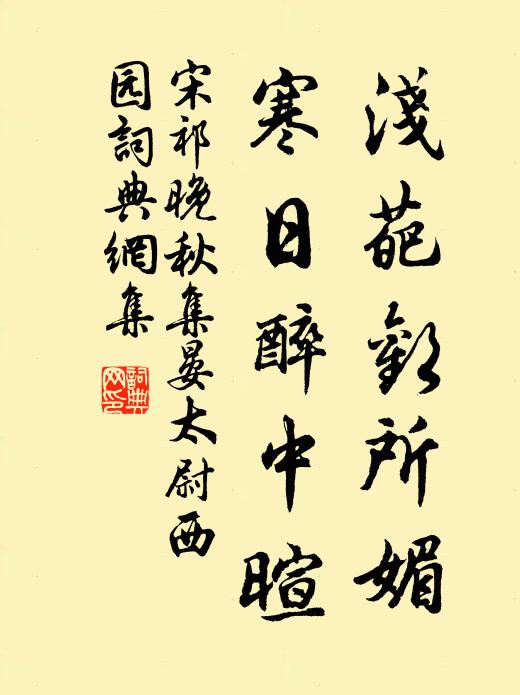 淺葩歡所媚
寒日醉中暄
宋祁晚秋集晏太尉西
园詞典網集
詞典
网印